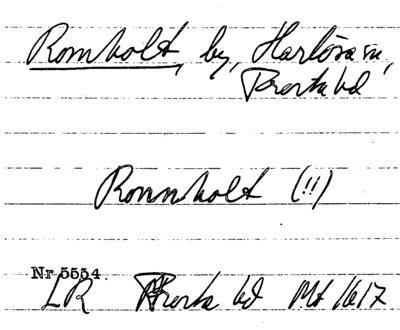 Romholt, by, Harlösa sn,
Frosta hd
Ronnholt (!!)
Nr 5554.
LR Frosta hd Mt 1617